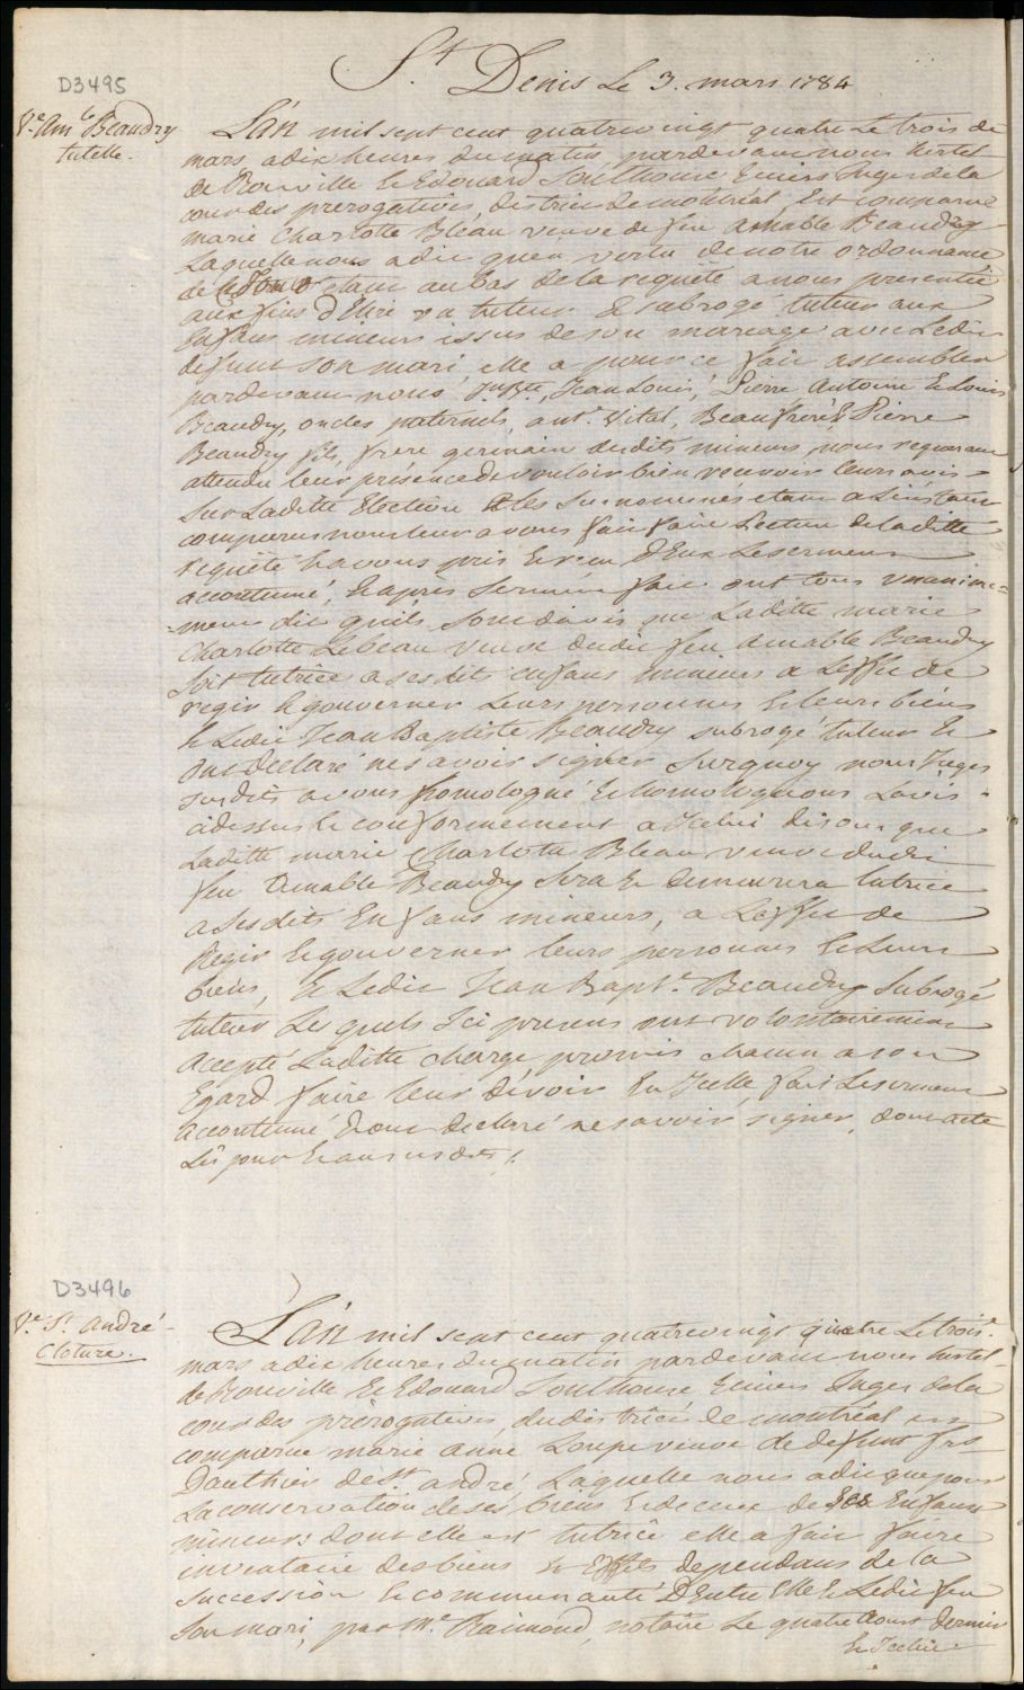 St. Denis Le 3. mars 1784
D3495
Ve. Amble Beaudry
tutelle.
L'án mil sept cent quatrevingt quatre Le trois de
mars adix heures du matin pardevant nous hertel
de Rouville & Edouard Southouse Ecuiers Juges de la
cour des prerogatives, district de montréal Est comparue
marie Charlotte Bleau veuve de feu Amable Beaudry
Laquelle nous adit quen vertu denotre ordonnance
de ce Jour étant aubas de la requete a nous presentée
aux fins d'Elire un tuteur & subrogé tuteur aux
Enfans mineurs issus de son mariage avec Ledit
defunt son mari elle a pour ce fait assembler
pardevant nous Jn. Bte, Jean Louis, Pierre Antoine & Louis
Beaudry, oncles paternels, ant. Vital, Beaufrere & Pierre
Beaudry fils, frere germain desdits mineurs nous requerant
attendu leur présence de vouloir bien recevoir leurs avis
Sur Laditte Election & les Surnommés étant a Linstant
comparus nous leur avons fait faire Lecture de laditte
requête & avons pris & reçu d'Eux Leserment
accoutumé, & après serment fait ont tous unanime=
=ment dit quils sont davis que Laditte marie
Charlotte Lebeau veuve dudit feu Amable Beaudry
Soit tutrice a sesdits enfans mineurs a Leffet de
regir & gouverner Leurs personnes & leurs biens
& Ledit Jean Baptiste Beaudry subrogé tuteur &
ont declaré ne savoir signer Surquoy nous Juges
susdits avons homologué & homologuons Lavis
cidessus & conformement a Icelui disons que
Laditte marie Charlotte Bleau veuve dudit
feu Amable Beaudry Sera & demeurera tutrice
a Sesdits Enfans mineurs, a Leffet de
Regir & gouverner leurs personnes & Leurs
biens, & Ledit Jean Bapte. Beaudry Subrogé
tuteur Lesquels Ici presens ont volontairement
accepté Laditte charge promis chacun a son
Egard faire leur devoir En Icelle, fait Leserment
accoutumé & ont declaré ne savoir signer, dont acte
Lês jour & an susdits /.
D3496
Ve. St. André
Cloture.
L'án mil sept cent quatrevingt quatre Le trois.
mars adix heures du matin pardevant nous hertel
de Rouville & Edouard Southouse Ecuiers Juges dela
cour des prerogatives dudistrict de montréal est
comparue marie anne Loupe veuve de defunt frs
Dauthier de St. andré, Laquelle nous adit que pour
La conservation de ses biens & de ceux de Ses Enfans
mineurs dont elle est tutrice elle a fait faire
inventaire des biens & Effets dependans de la
succession & communauté D'Entre Elle & Ledit feu
Son mari, par Me. Raimond, notaire Le quatre Aoust dernier
& Icelui